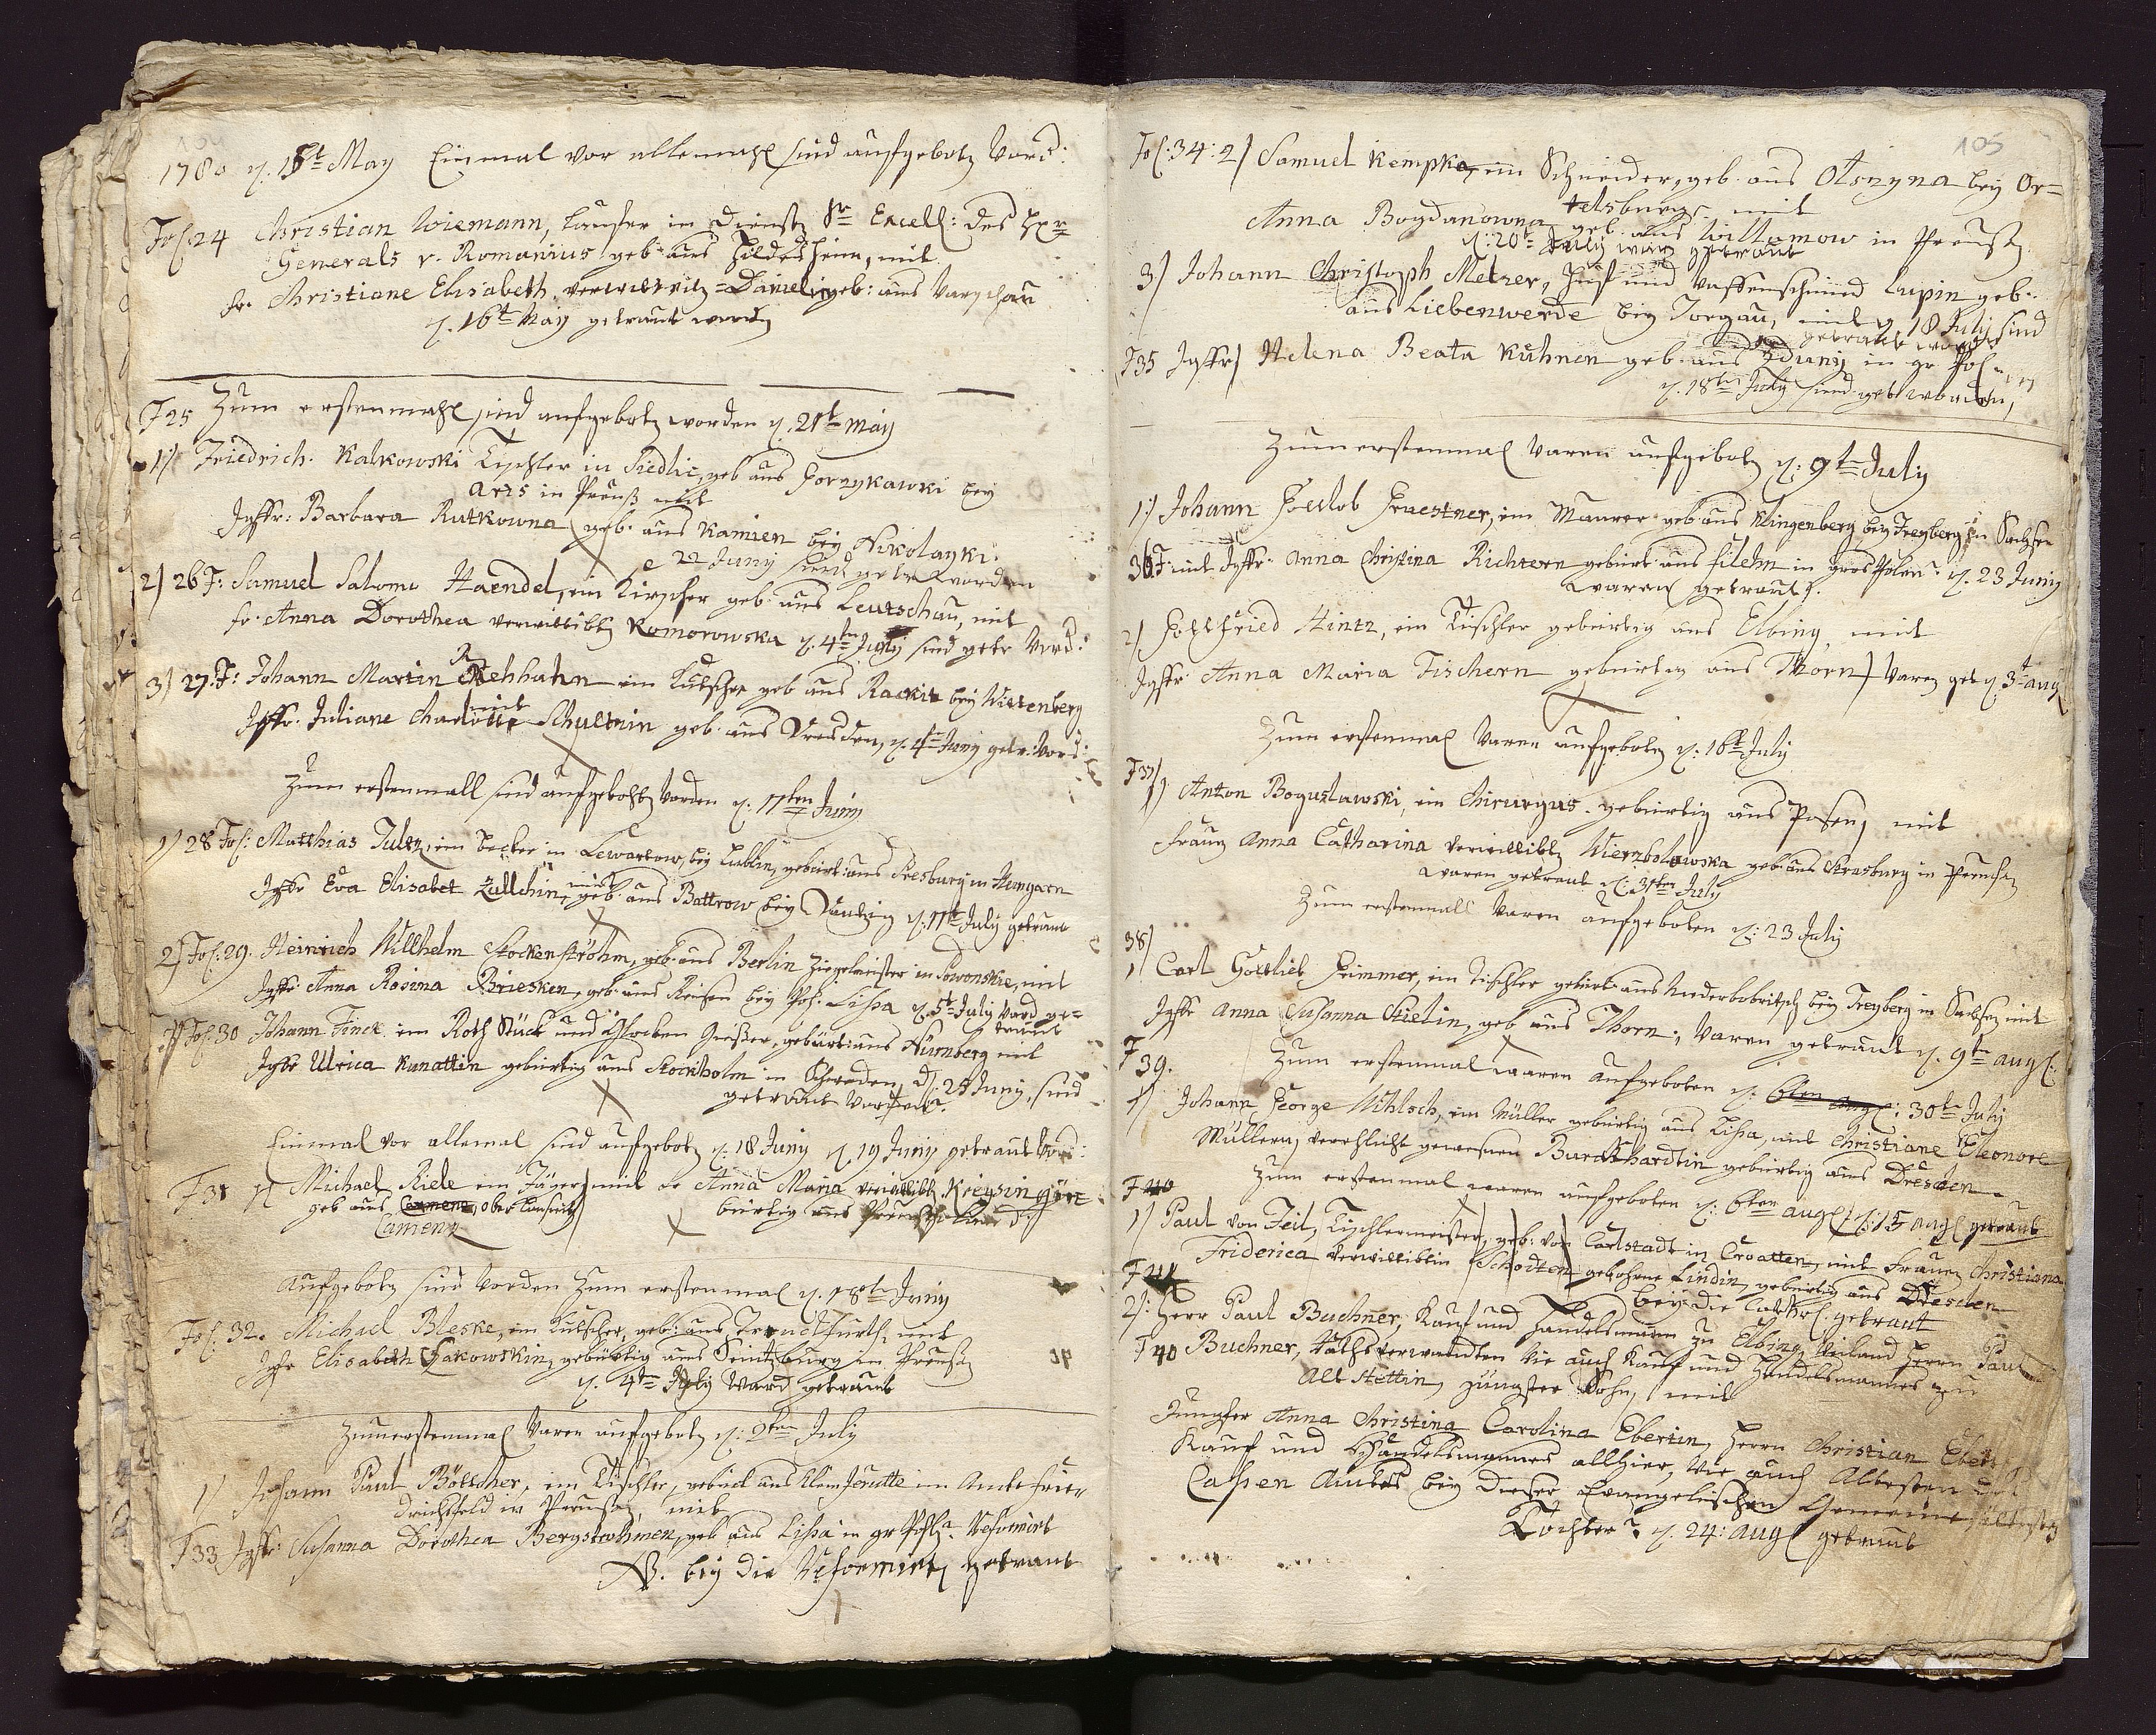 1780 d. 15t May Einmal vor allemahl sind aufgeboth Word:
Fol: 24 Christian Wiemann, Läufer in Dienst Sr Excell: des Hrn
Generals v. Romanius geb. aus Hildesheim, mit
fr. Christiane Elisabeth verwittwete Danielin geb: aus Warschau
d. 16t May getraut worden
F 25 Zum erstenmahl sind aufgeboth worden d. 21t May
1) Friedrich Kalkowski Tischler in Siedlic, geb aus Gorzykawki bey
Aris in Preuß mit
Jgfr: Barbara Rutkowna geb. aus Kamien bey Nikolayki.
d 22 Juny sind getr worden
2) 26 F: Samuel Salomo Haendel, ein Kirscher geb. aus Leutschau, mit
fr. Anna Dorothea verwittibte Komorowska d. 4ten July sind getr Word:
3) 27. F: Johann Martin Rehhahn ein Kutscher geb aus Rackit bey Wittenberg
mit
Jgfr. Juliane Charlotte Schultzin geb. aus Dresden, d. 4ten Juny getr: Word:
Zum erstenmall sind aufgeboth Worden d. 11ten Juny
1) 28 Fol: Matthias Jultz, ein Becker in Lewartow bey Lublin, gebürt: aus Presburg in Hungarn
mit
Jgfr Eva Elisabet Zullchin, geb. aus Battrow bey d. 11t July getraut
2) Fol: 29. Heinrich Willhelm Stockenströhm, geb. aus Berlin Ziegelmeister in Powonskie, mit
Jgfr Anna Rosina Briesken, geb. aus Reisen bey Poh. Lissa d. 5t July Word ge=
traut
Fol: 30 Johann Finck ein Roth Stück und Glocken Gießer, gebürt: aus Nürnberg mit
Jgfr Ulrica Kunattin gebürtig aus Stockholm in Schweden, d. 25 Juny, sind
getraut Worden.
Einmal vor allemal sind aufgeboth d. 18 Juny d. 19 Juny getraut Word:
F 31 1) Michael Riele ein Jäger mit fr Anna Maria verwittibte Kreysin ge=
geb aus Camenz, ober Lausnitz bürtig aus
Camenz
Aufgeboth sind Worden Zum erstenmal d. 18te Juny
Fol: 32. Michael Bleske, ein Kutscher, geb: aus mit
Jgfr Elisabeth Czakowskin, gebürtig aus Seintzburg in Preußen
d. 4te July Ward getraut
Zum erstenmal Waren aufgeboth d. 2ten July
1) Johann Paul Böttcher, ein Tischler, gebürt aus Klein Jerutte im Amte Frie=
drichsfeld in Preußen, mit
F 33 Jgfr Susanna Dorothea Bergstrohmen, geb aus Lissa in gr Pohl. Reformirt
NB. bey die Reformirten getraut
105
Fol: 34: 2) Samuel Kempka, ein Schneider, geb. aus Olszyna bey Or=
telsburg mit
Anna Bogdanowna geb. aus Willamow in Preußen
d: 20t July warn getraut
3) Johann Christoph Metzer, Huf und Waffenschmied Lupin geb.
aus Liebenwerde bey Torgau, mit d. 18 July sind
getraut worden
F 35 Jgfr Helena Beata Kühnen geb. aus Zduny in gr Pohlen
d. 18ten July sind getr worden,
Zum erstenmal Waren aufgeboth d: 9te July
1) Johann Gottlob Gruestner, ein Maurer geb. aus Klingenberg bey Freyberg in Sachsen
36 F. mit Jgfr. Anna Christina Richtern gebürt. aus Filehn in gros Pohlen. d. 23 Juny
waren getraut.
2) Gottfried Hintz, ein Tischler gebürtig aus Elbing, mit
Jgfr Anna Maria Fischern gebürtig aus Thorn Waren get d 3t aug
Zum erstenmal Waren aufgeboth d. 16te July
F 37 1) Anton Boguslawski, ein Chirurgus gebürtig aus Posen, mit
Frauen Anna Catharina verwittibte Wierzbolowska geb: aus Strasburg in Preußen
waren getraut d: 31ten July
Zum erstenmall Waren aufgeboten d: 23 July
38)
1 Carl Gottlieb Grimmer, ein Tischler gebürt: aus Niederbobritsch bey Freyberg in Sachsen mit
Jgfr Anna Susanna Stielin, geb aus Thorn; Waren getraut d. 9te aug:
F 39. Zum erstenmal waren aufgeboten d. 6ten aug: 30te July
1) Johann George Wihloch, ein Müller gebürtig aus Lissa, mit Christiane Eleonore
Müllern, verehlicht gewesenen Burckhardtin gebürtig aus Dresden
F 40 Zum erstenmal waren aufgeboten d: 6ten aug: d: 15 aug getraut
1) Paul von Feil, Tischlermeister, geb. von Carlstadt in Croatien, mit Frauen Christiana
Friderica verwittibtin Schodten gebohrne Lindin, gebürtig aus Dresden
F 41 bey die Cathol. getraut
2): Herr Paul Buchner, Kauf und Handelsmann zu Elbing, Weiland Herrn Paul
F 40 Buchner, Rathsverwandten Wie auch Kauf und Handelsmannes zu
Alt Stettin, jüngster Sohn, mit
Jungfer Anna Christina Carolina Ebertin, Herrn Christian Ebert
Kauf und Handelsmannes allhier, Wie auch Altesten des
Cassen Amtes bey dieser Evangelischen Gemeine
Tochter. d. 24: aug getraut